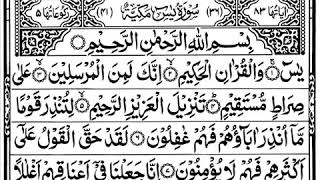 اٰیاتها ۸۳ (۳۶) سُوْرَةُ يٰسٓ مَكِّيَّةٌ (۴۱) رکوعاتها ۵
بِسْمِ اللّٰهِ الرَّحْمٰنِ الرَّحِيْمِ
يٰسٓ ۚ وَالْقُرْاٰنِ الْحَكِيْمِ ۙ اِنَّكَ لَمِنَ الْمُرْسَلِيْنَ ۙ عَلٰى
صِرَاطٍ مُّسْتَقِيْمٍ ؕ تَنْزِيْلَ الْعَزِيْزِ الرَّحِيْمِ ۙ لِتُنْذِرَ قَوْمًا
مَّاۤ اُنْذِرَ اٰبَآؤُهُمْ فَهُمْ غٰفِلُوْنَ ۞ لَقَدْ حَقَّ الْقَوْلُ عَلٰۤى
اَكْثَرِهِمْ فَهُمْ لَا يُؤْمِنُوْنَ ۞ اِنَّا جَعَلْنَا فِيْۤ اَعْنَاقِهِمْ اَغْلٰلًا